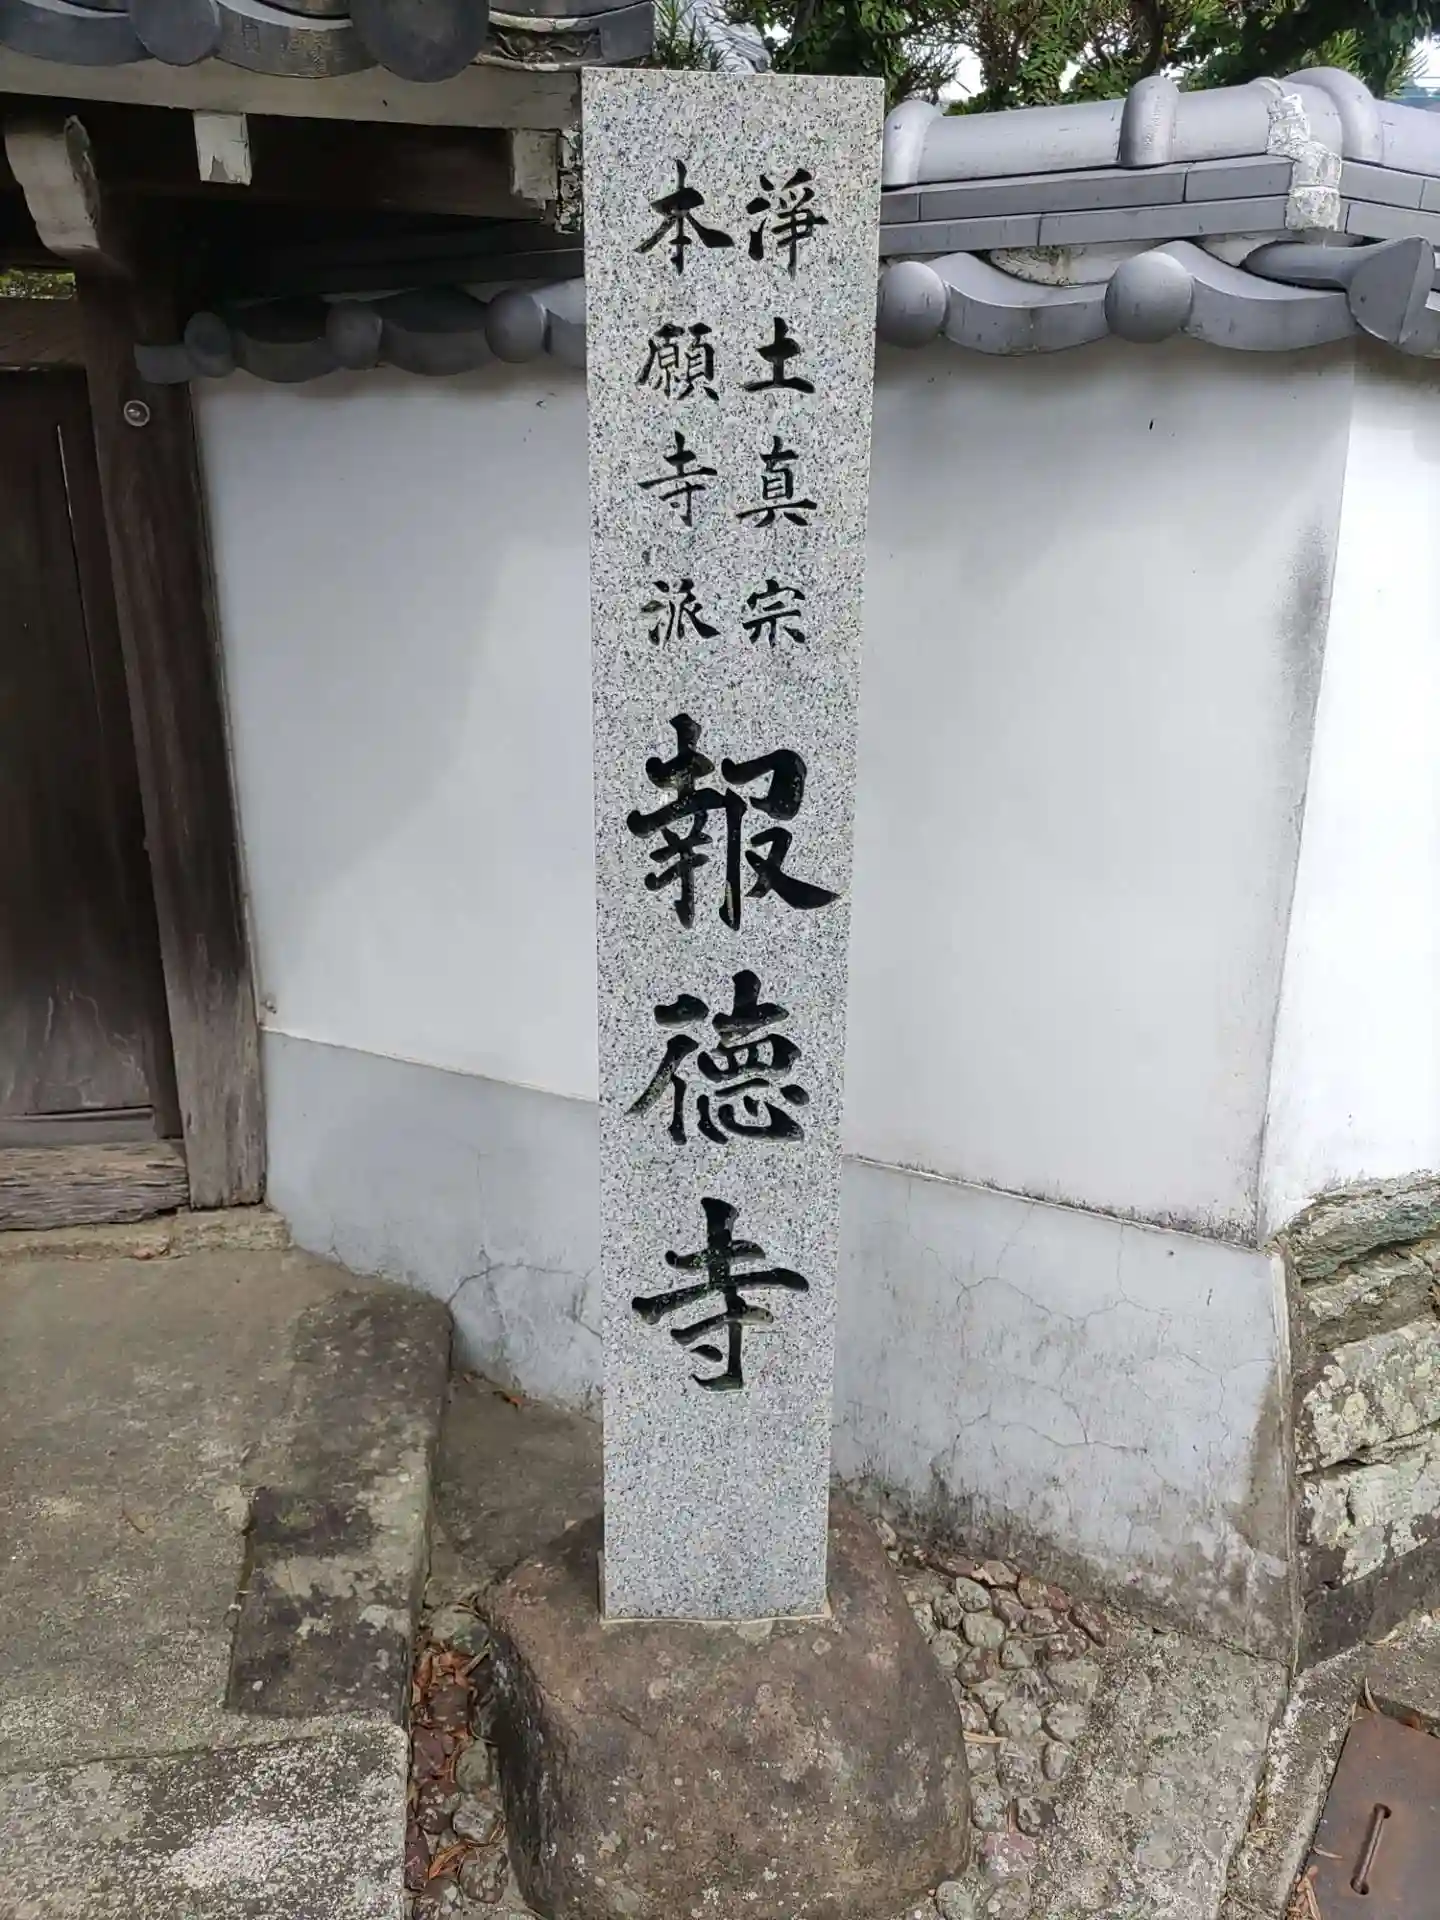 淨土真宗
本願寺派
報德寺